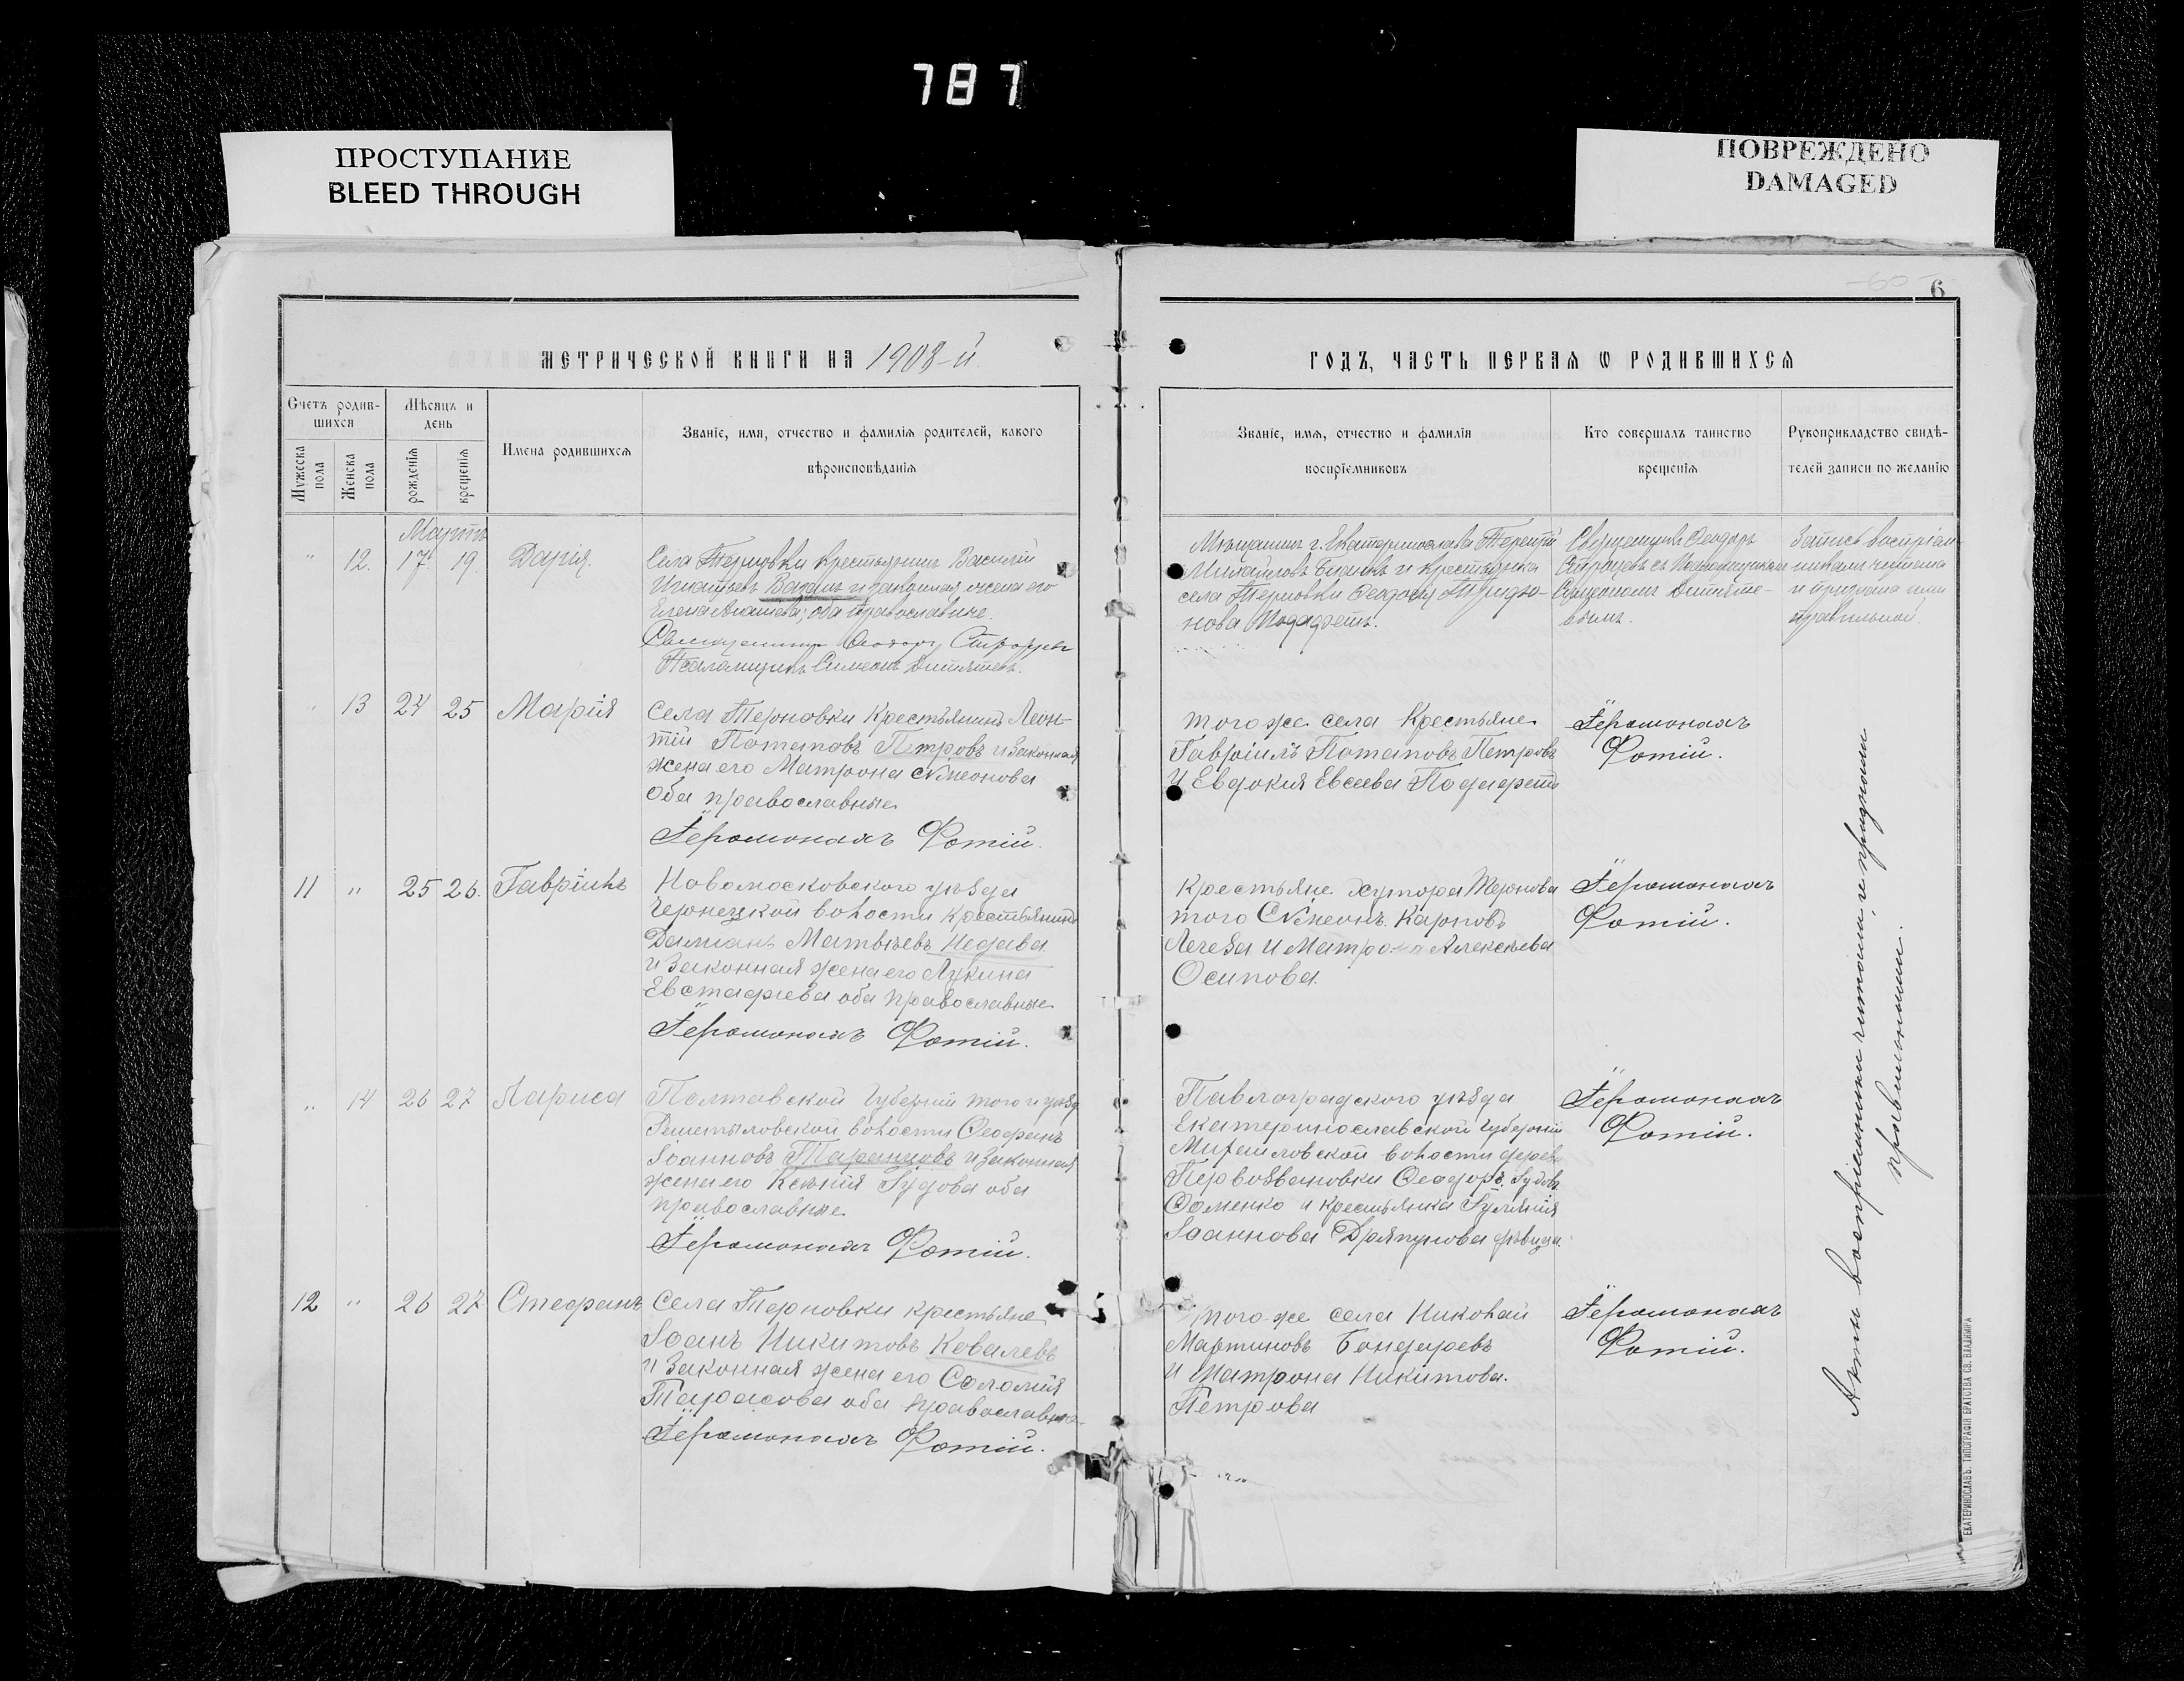 787
ПРОСТУПАНИЕ
BLEED THROUGH
ПОВРЕЖДЕНО
DAMAGED
6
МЕТРИЧЕСКОЙ КНИГИ НА 1908-й
ГОДЪ, ЧАСТЬ ПЕРВАЯ Ѡ РОДИВШИХСЯ
Счетъ родив-
шихся
Мужеска пола
Женска пола
Мѣсяцъ и
день
рожденія
крещенія
Имена родившихся
Званіе, имя, отчество и фамилія родителей, какого
вѣроисповѣданія
Званіе, имя, отчество и фамилія
воспріемниковъ
Кто совершалъ таинство
крещенія
Рукоприкладство свидѣ-
телей записи по желанію
Мартъ
" 12. 17. 19. Дарія.
Села Терновки крестьянинъ Василій
Игнатьевъ и законная жена его
Елена оба православные.
Священникъ Ѳеодоръ
Псаломщикъ Симеонъ Дитятевъ.
Мѣщанинъ г. Екатеринослава Терентій
Михайловъ и крестьянка
села Терновки
нова
Священникъ Ѳеодоръ
съ Псаломщикомъ
Симеономъ Дитяте-
вымъ.
Запись воспріем-
никами читана
и признана ими
правильной.
" 13 24 25 Марія
Села Терновки Крестьянинъ Леон-
тій Потаповъ Петровъ и Законная
жена его Матрона Сѵмеонова
Оба православные
Іеромонахъ Фотій.
того же села Крестьяне
Гавріилъ Потаповъ Петровъ
и Евдокия Евсеева
Іеромонахъ
Фотій.
11 " 25 26. Гавріилъ
Новомосковского уѣзда
волости крестьянинъ
Даміанъ Матвѣевъ
и Законная жена его Лукина
Евстафиева оба православные
Іеромонахъ Фотій.
Крестьяне хутора Тернова
того Сѵмеонъ Карповъ
и Матрона Алексѣева
Осипова.
Іеромонахъ
Фотій.
" 14 26 27 Лариса
Полтавской Губерніи того и уѣзд
волости Ѳеофанъ
Іоанновъ и Законная
жена его Ксенія Іудова оба
православные
Іеромонахъ Фотій.
Павлоградского уѣзда
Екатеринославской Губерніи
волости дерев
Первозвановки Ѳеодоръ Іудовъ
Фоменко и крестьянка Іулянія
Іоаннова дѣвица.
Іеромонахъ
Фотій.
12 " 26 27 Стефанъ
Села Терновки крестьяне
Іоанъ Никитовъ Ковалевъ
и Законная жена его Соломія
Тарасова оба православные
Іеромонахъ Фотій.
того же села Николай
Мартиновъ Бондаревъ
и Матрона Никитова.
Петрова
Іеромонахъ
Фотій.
Акты воспріемники читали и признали
правильными.
ЕКАТЕРИНОСЛАВЪ. ТИПОГРАФІЯ БРАТСТВА СВ. ВЛАДИМІРА